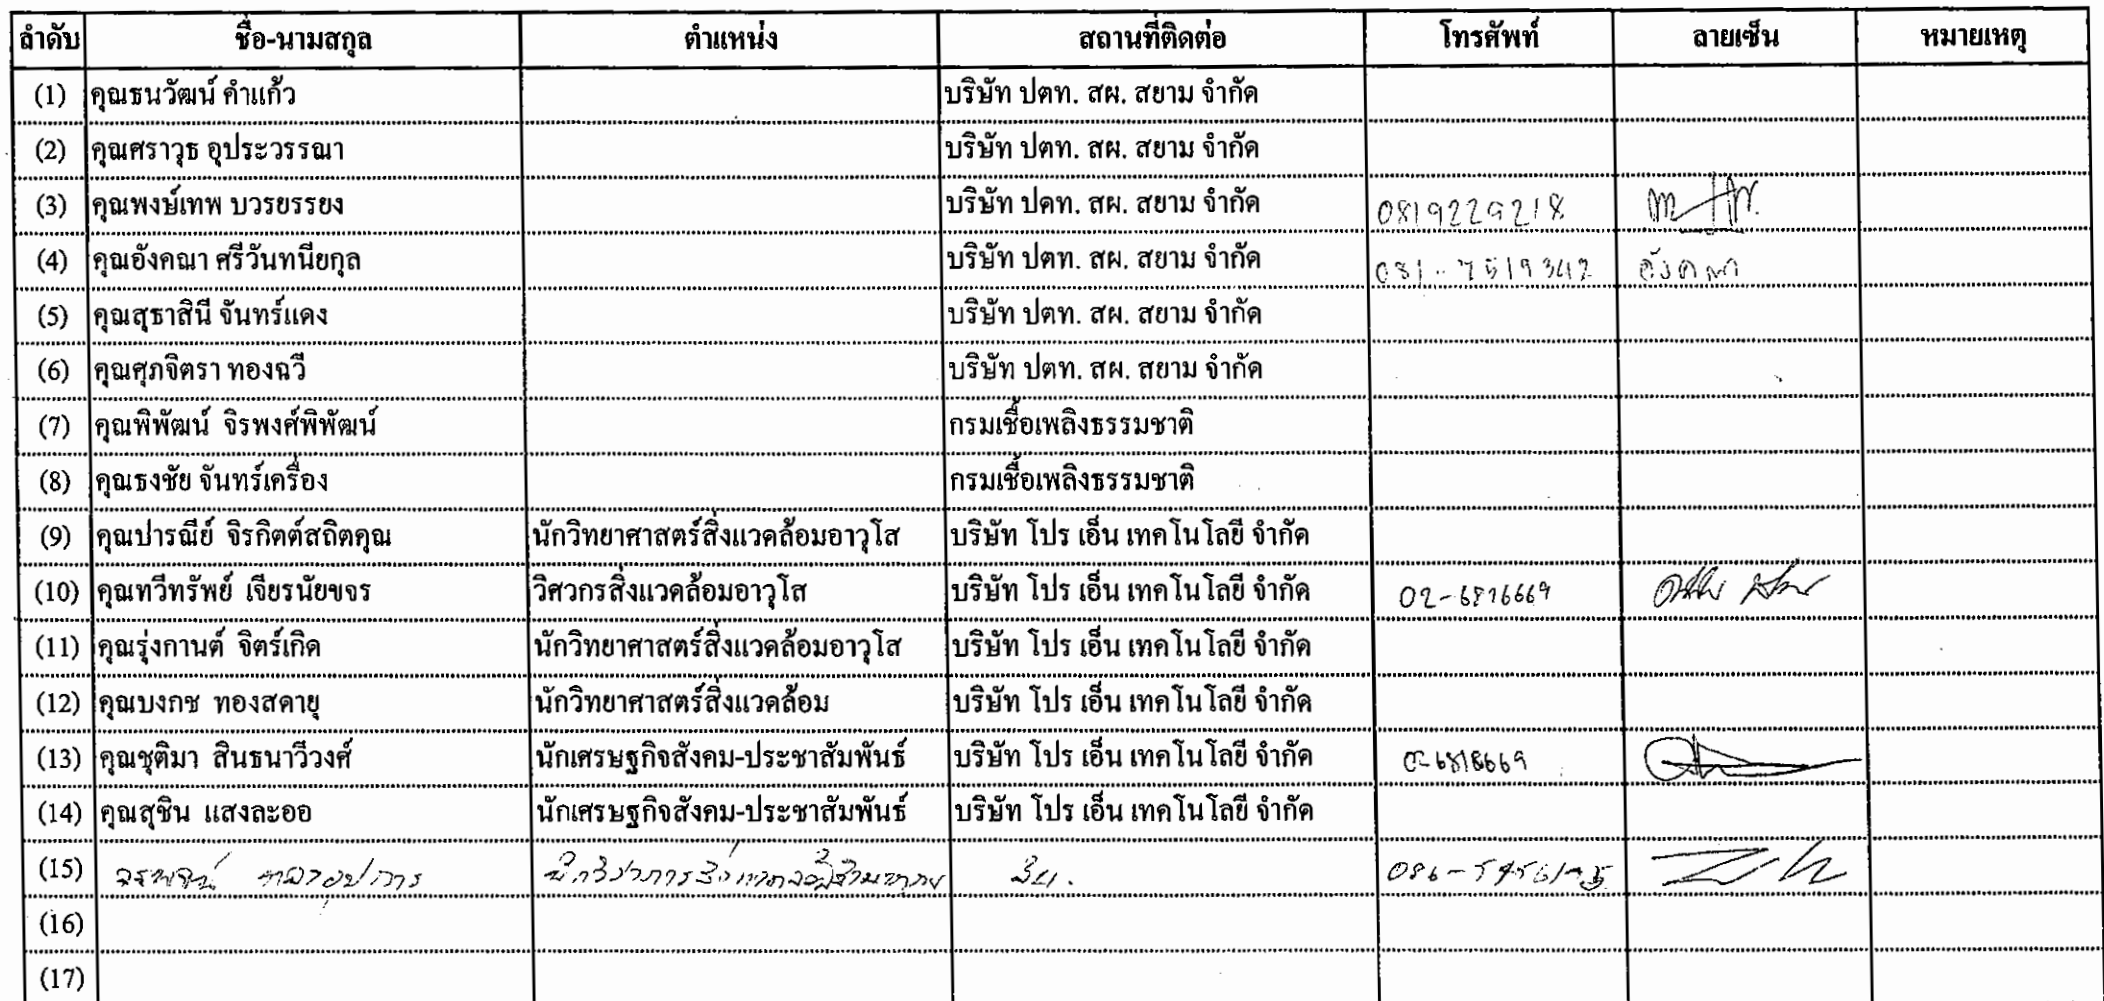 ลำดับ ชื่อ-นามสกุล ตำแหน่ง สถานที่ติดต่อ โทรศัพท์ ลายเซ็น หมายเหตุ
(1) คุณธนวัฒน์ คำแก้ว บริษัท ปตท. สผ. สยาม จำกัด
(2) คุณศราวุธ อุประวรรณา บริษัท ปตท. สผ. สยาม จำกัด
(3) คุณพงษ์เทพ บวรยรรยง บริษัท ปตท. สผ. สยาม จำกัด 0819229218
(4) คุณอังคณา ศรีวันทนียกุล บริษัท ปตท. สผ. สยาม จำกัด 081-7519342 อังคณา
(5) คุณสุธาสินี จันทร์แดง บริษัท ปตท. สผ. สยาม จำกัด
(6) คุณศุภจิตรา ทองฉวี บริษัท ปตท. สผ. สยาม จำกัด
(7) คุณพิพัฒน์ จิรพงศ์พิพัฒน์ กรมเชื้อเพลิงธรรมชาติ
(8) คุณธงชัย จันทร์เครื่อง กรมเชื้อเพลิงธรรมชาติ
(9) คุณปารณีย์ จิรกิตต์สถิตคุณ นักวิทยาศาสตร์สิ่งแวดล้อมอาวุโส บริษัท โปร เอ็น เทคโนโลยี จำกัด
(10) คุณทวีทรัพย์ เจียรนัยขจร วิศวกรสิ่งแวดล้อมอาวุโส บริษัท โปร เอ็น เทคโนโลยี จำกัด
(11) คุณรุ่งกานต์ จิตร์เกิด นักวิทยาศาสตร์สิ่งแวดล้อมอาวุโส บริษัท โปร เอ็น เทคโนโลยี จำกัด
(12) คุณบงกช ทองสดายุ นักวิทยาศาสตร์สิ่งแวดล้อม บริษัท โปร เอ็น เทคโนโลยี จำกัด
(13) คุณชุติมา สินธนาวีวงศ์ นักเศรษฐกิจสังคม-ประชาสัมพันธ์ บริษัท โปร เอ็น เทคโนโลยี จำกัด
(14) คุณสุชิน แสงละออ นักเศรษฐกิจสังคม-ประชาสัมพันธ์ บริษัท โปร เอ็น เทคโนโลยี จำกัด
(15)
(16)
(17)